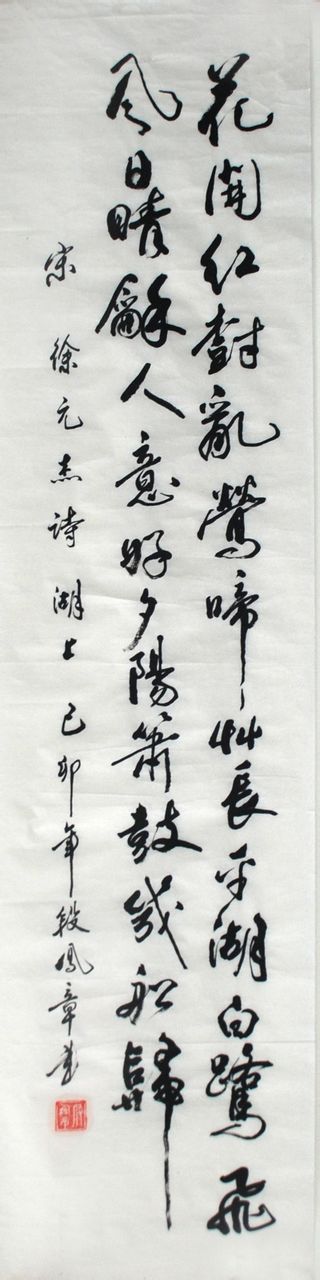 花開紅樹亂鶯啼艸長平湖白鷺飛
風日晴龢人意好夕陽簫鼓幾船歸
宋徐元杰詩湖上己卯年段鳳章書